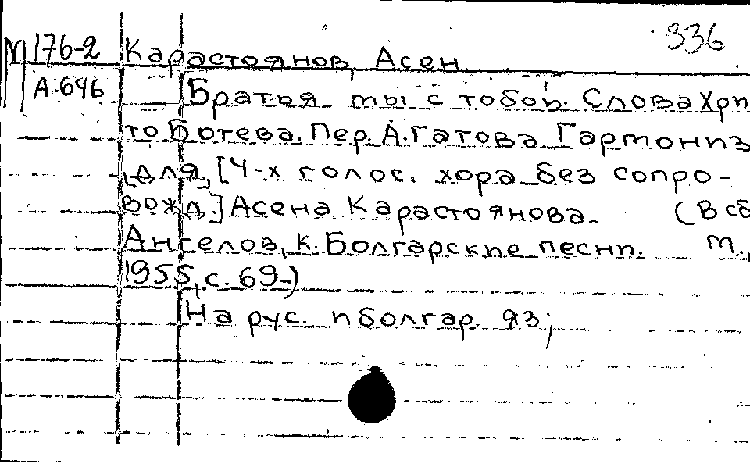 336
М 176-2 Карастоянов, Асен
А-646 Братья мы с тобой. Слова Хри
то Ботева. Пер. А. Гатова. Гармониз
для [4-х голос. хора без сопро-
вожд.] Асена Карастоянова. (В сб
Ангелов, К. Болгарские песни. М.,
1955, с. 69-)
На рус. и болгар. яз;